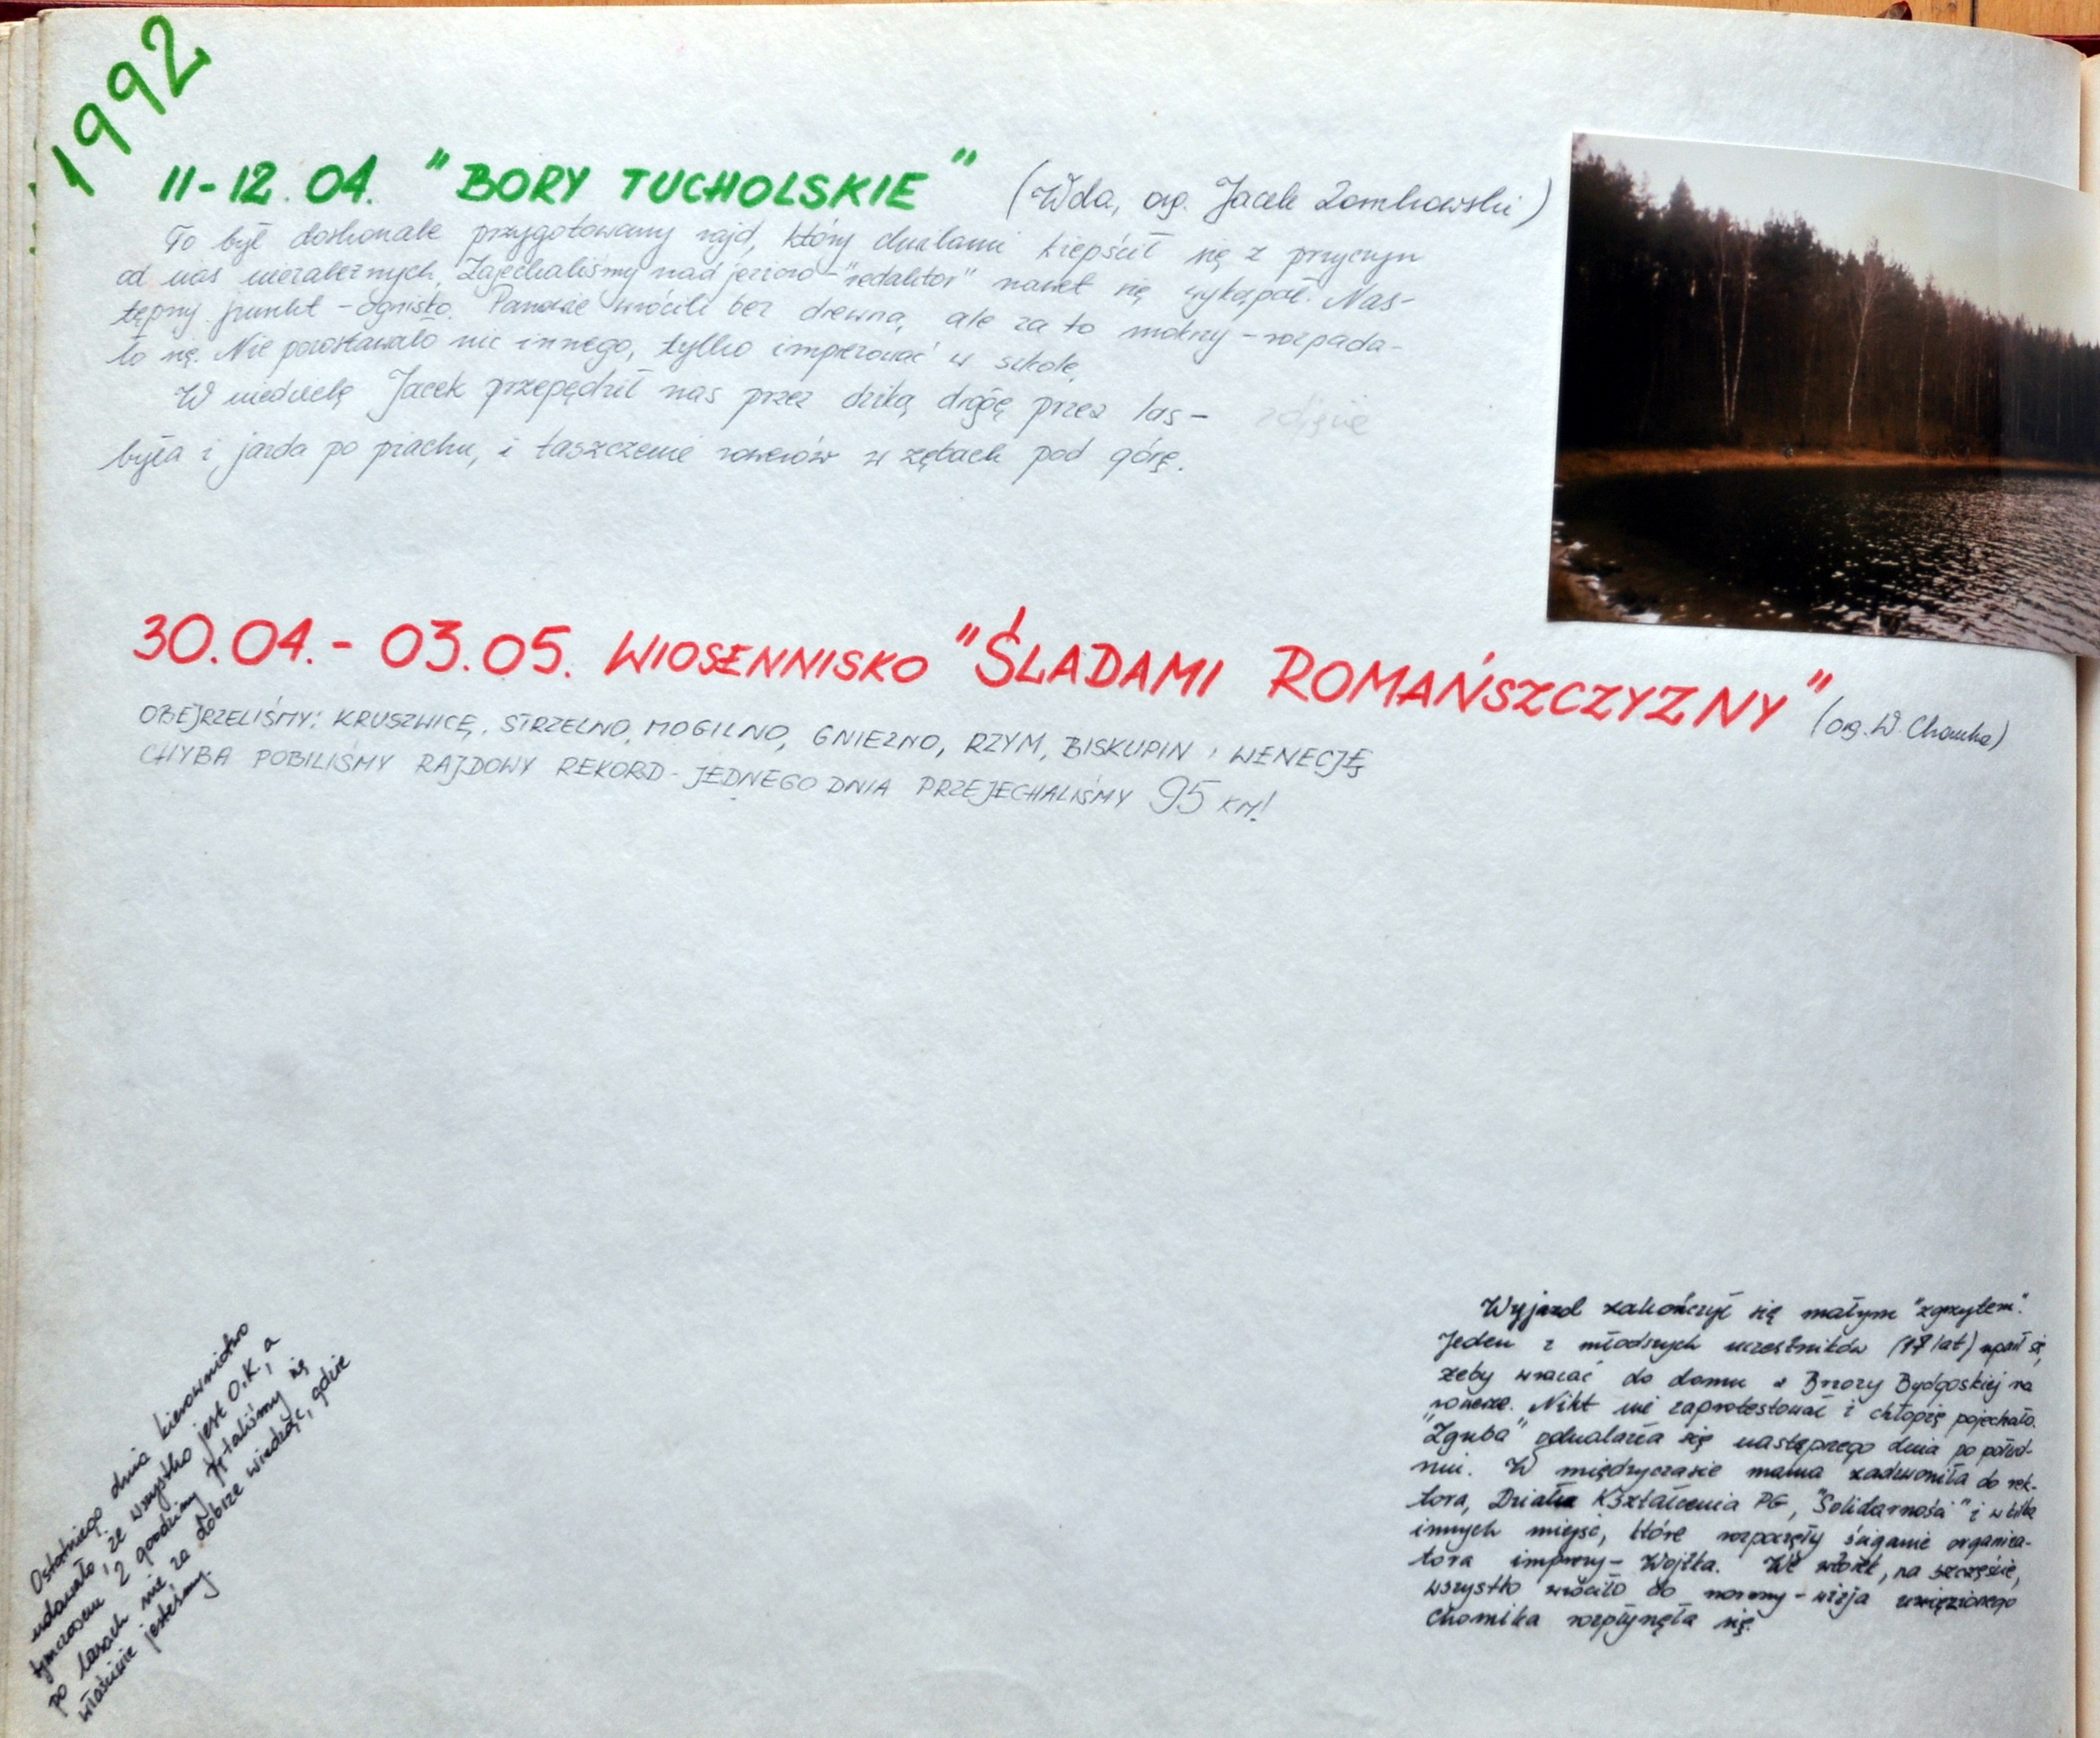 1992
11-12.04. "BORY TUCHOLSKIE" (Wda, org. Jacek Zomkowski)
To był doskonale przygotowany rajd, który chwilami kiepścił się z przyczyn
od nas niezależnych. Zajechaliśmy nad jezioro - "redaktor" nawet się wykąpał. Nas-
tępny punkt - ognisko. Panowie wrócili bez drewna, ale za to mokrzy - rozpada-
ło się. Nie pozostawało nic innego, tylko imprezować w szkole.
W niedzielę Jacek przepędził nas przez dziką drogę przez las -
była i jazda po piachu, i taszczenie rowerów w zębach pod górę.
zdjęcie
30.04.- 03.05. WIOSENNISKO "ŚLADAMI ROMAŃSZCZYZNY" (org. W.
OBEJRZELIŚMY: KRUSZWICĘ, STRZELNO, MOGILNO, GNIEZNO, RZYM, BISKUPIN i WENECJĘ
CHYBA POBILIŚMY RAJDOWY REKORD - JEDNEGO DNIA PRZEJECHALIŚMY 95 KM!
Ostatniego dnia kierownictwo
udawało, że wszystko jest O.K., a
tymczasem 2 godziny pętaliśmy się
po lasach nie za dobrze wiedząc, gdzie
właściwie jesteśmy.
Wyjazd zakończył się małym "zgrzytem".
Jeden z młodszych uczestników (17 lat) uparł się,
żeby wracać do domu z Brzozy Bydgoskiej na
rowerze. Nikt nie zaprotestował i chłopię pojechało.
"Zguba" odnalazła się następnego dnia po połud-
niu. W międzyczasie mama zadzwoniła do rek-
tora, Działu Kształcenia PG, "Solidarności" i w kilka
innych miejsc, które rozpoczęły ściganie organiza-
tora imprezy - Wojtka. We wtorek, na szczęście,
wszystko wróciło do normy - wizja uwięzionego
Chomika rozpłynęła się.